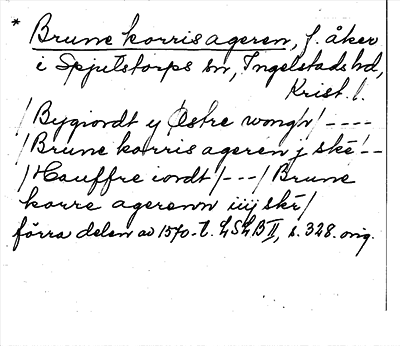 * Brune korris ageren, f. åker
i Spjutstorps sn, Ingelstads hd,
Krist. l.
/Bygiordt y Østre wongh/ ----
/Brune korris ageren j ske/--
/Hauffre iordt/---/Brune
korre agerenn iiij ske/
förra delen av 1570-t. LSLB II, s. 328. orig.